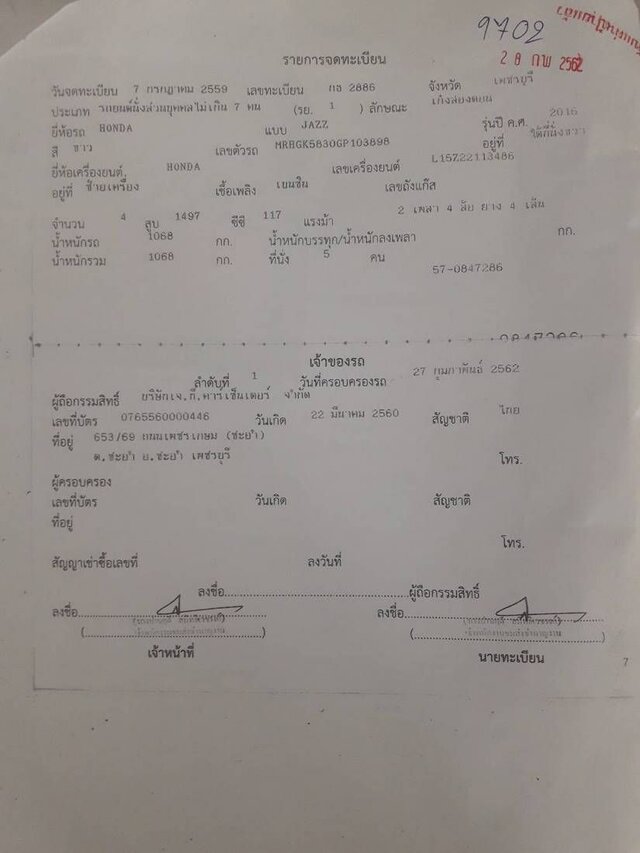 9702
28 กพ 2562
รายการจดทะเบียน
วันจดทะเบียน 7 กรกฎาคม 2559 เลขทะเบียน กธ 2886 จังหวัด เพชรบุรี
ประเภท รถยนต์นั่งส่วนบุคคลไม่เกิน 7 คน (รย. 1 ) ลักษณะ เก๋งสองตอน
ยี่ห้อรถ HONDA แบบ JAZZ รุ่นปี ค.ศ. 2016
สี ขาว เลขตัวรถ MRHGK5830GP103898 อยู่ที่ ใต้ที่นั่งขวา
ยี่ห้อเครื่องยนต์ HONDA เลขเครื่องยนต์ L15Z22113486
อยู่ที่ ซ้ายเครื่อง เชื้อเพลิง เบนซิน เลขถังแก๊ส
จำนวน 4 สูบ 1497 ซีซี 117 แรงม้า 2 เพลา 4 ล้อ ยาง 4 เส้น
น้ำหนักรถ 1068 กก. น้ำหนักบรรทุก/น้ำหนักลงเพลา กก.
น้ำหนักรวม 1068 กก. ที่นั่ง 5 คน
57-0847286
เจ้าของรถ
ลำดับที่ 1 วันที่ครอบครองรถ 27 กุมภาพันธ์ 2562
ผู้ถือกรรมสิทธิ์ บริษัทเจ.ที.คาร์เซ็นเตอร์ จำกัด
เลขที่บัตร 0765560000446 วันเกิด 22 มีนาคม 2560 สัญชาติ ไทย
ที่อยู่ 653/69 ถนนเพชรเกษม (ชะอำ)
ต.ชะอำ อ.ชะอำ เพชรบุรี โทร.
ผู้ครอบครอง
เลขที่บัตร วันเกิด สัญชาติ
ที่อยู่
โทร.
สัญญาเช่าซื้อเลขที่ ลงวันที่
ลงชื่อ ผู้ถือกรรมสิทธิ์
ลงชื่อ ลงชื่อ
เจ้าหน้าที่ นายทะเบียน
7